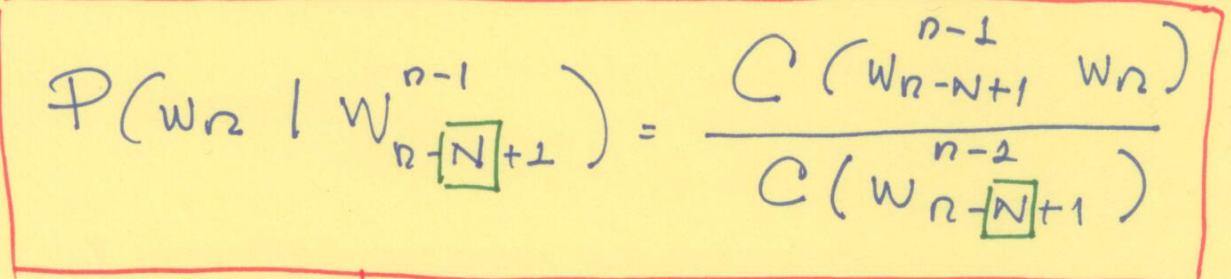 P(w_n | w_{n-N+1}^{n-1}) = \frac{C(w_{n-N+1}^{n-1} w_n)}{C(w_{n-N+1}^{n-1})}